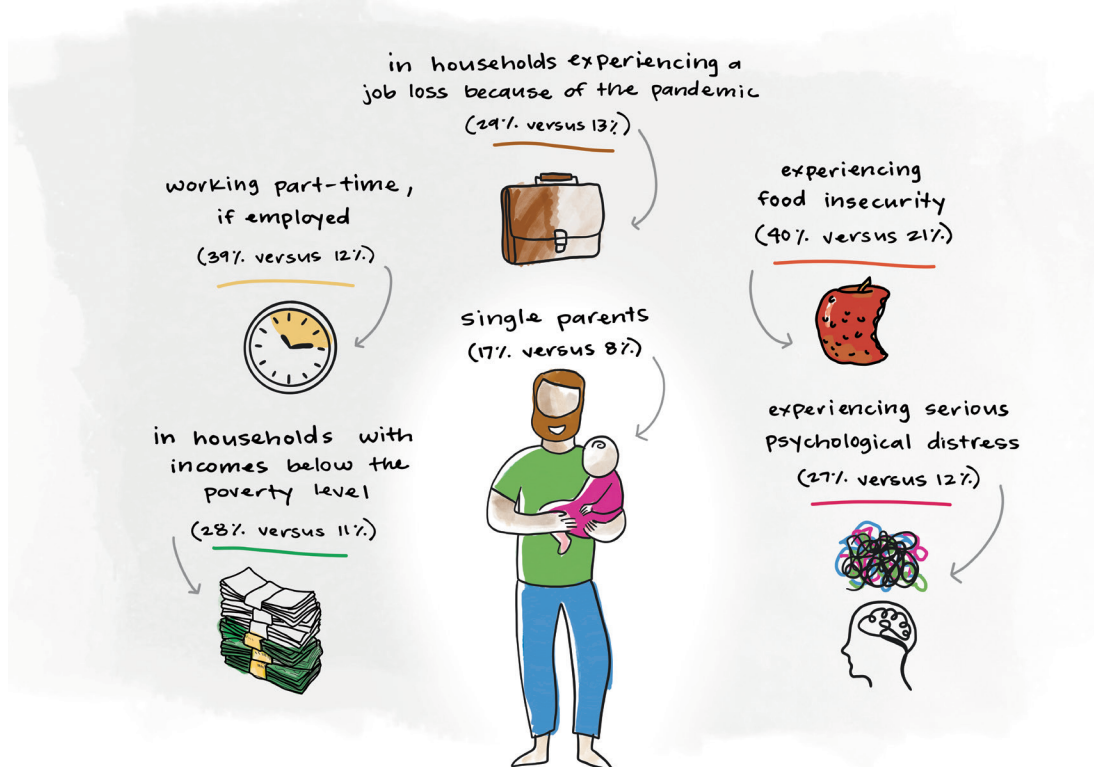 in households experiencing a
job loss because of the pandemic
(29% versus 13%)
working part-time,
if employed
(39% versus 12%)
experiencing
food insecurity
(40% versus 21%)
single parents
(17% versus 8%)
in households with
incomes below the
poverty level
(28% versus 11%)
experiencing serious
psychological distress
(27% versus 12%)